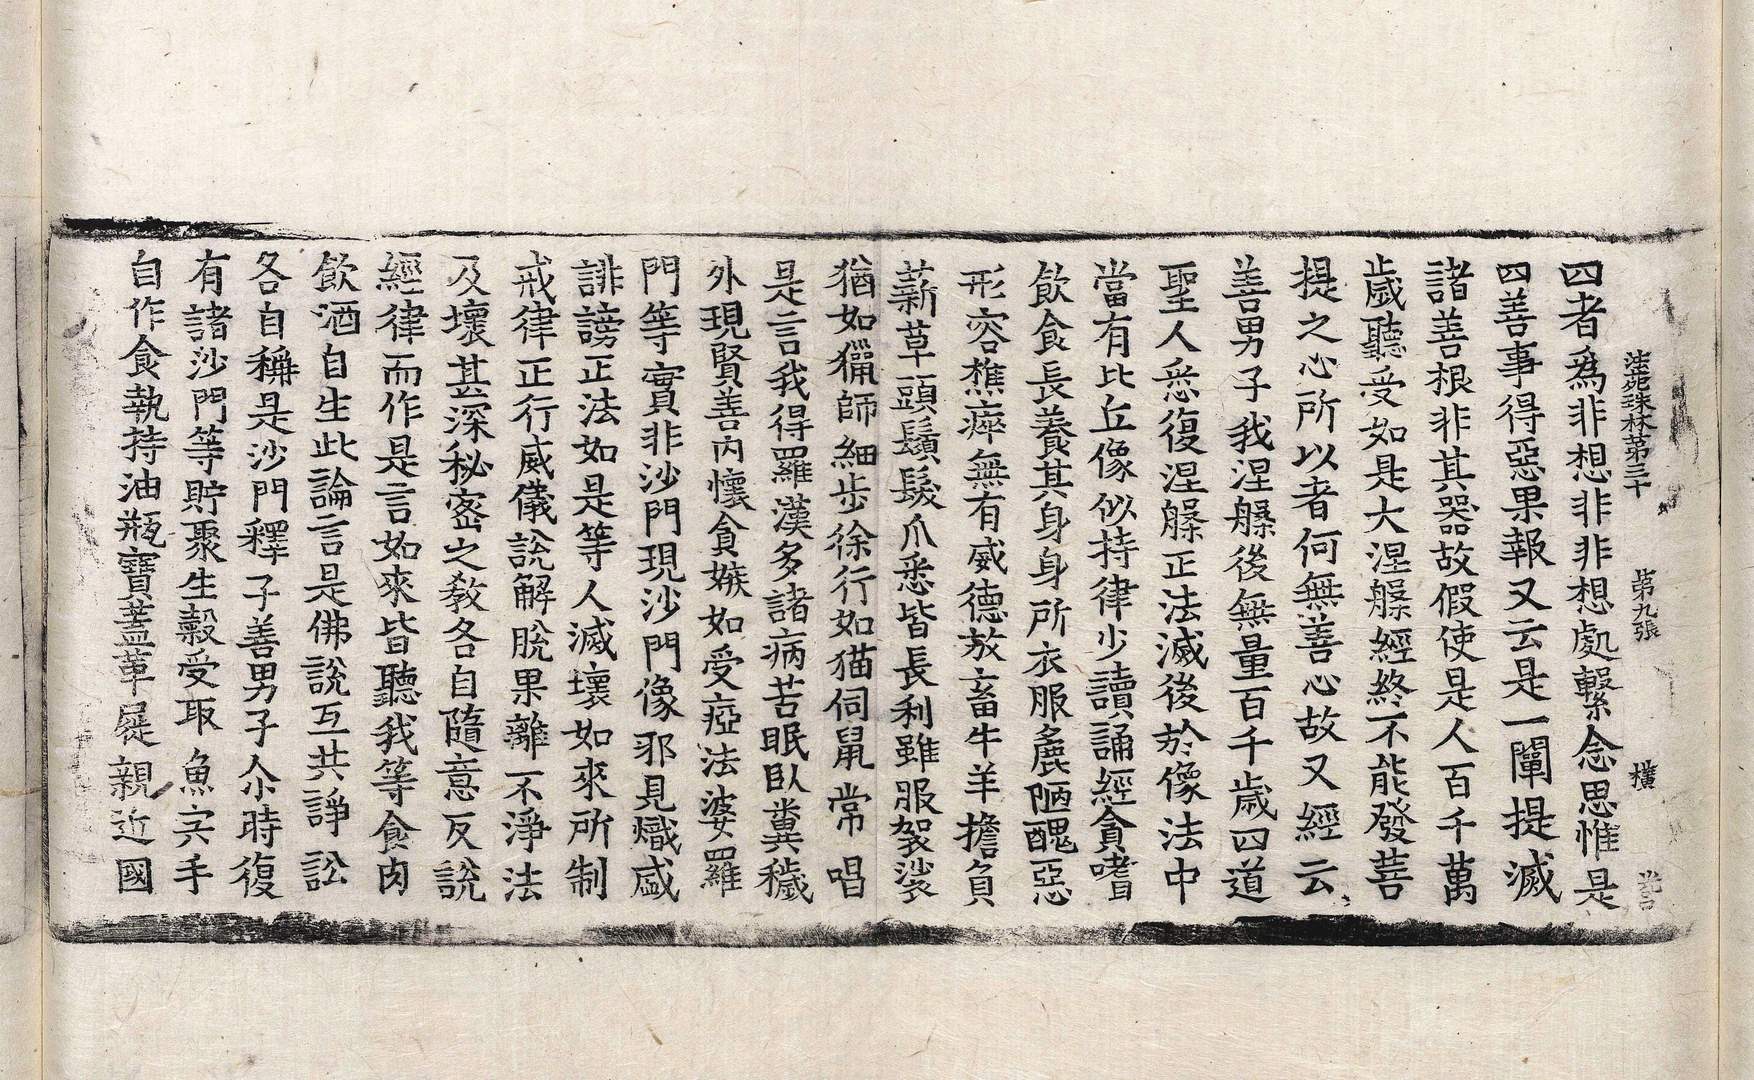 法苑珠林第三十 第九張 橫
四者爲非想非非想處繫念思惟是
四善事得惡果報又云是一闡提滅
諸善根非其器故假使是人百千萬
歲聽受如是大涅槃經終不能發菩
提之心所以者何無善心故又經云
善男子我涅槃後無量百千歲四道
聖人悉復涅槃正法滅後於像法中
當有比丘像似持律少讀誦經貪嗜
飲食長養其身身所衣服麁陋醜惡
形容憔悴無有威德放畜牛羊擔負
薪草頭鬚髮爪悉皆長利雖服袈裟
猶如獵師細步徐行如猫伺鼠常唱
是言我得羅漢多諸病苦眠臥糞穢
外現賢善內懷貪嫉如受瘂法婆羅
門等實非沙門現沙門像邪見熾盛
誹謗正法如是等人滅壞如來所制
戒律正行威儀說解脫果離不淨法
及壞甚深秘密之敎各自隨意反說
經律而作是言如來皆聽我等食肉
飲酒自生此論言是佛說互共諍訟
各自稱是沙門釋子善男子尒時復
有諸沙門等貯聚生穀受取魚宍手
自作食執持油瓶寶蓋革屣親近國